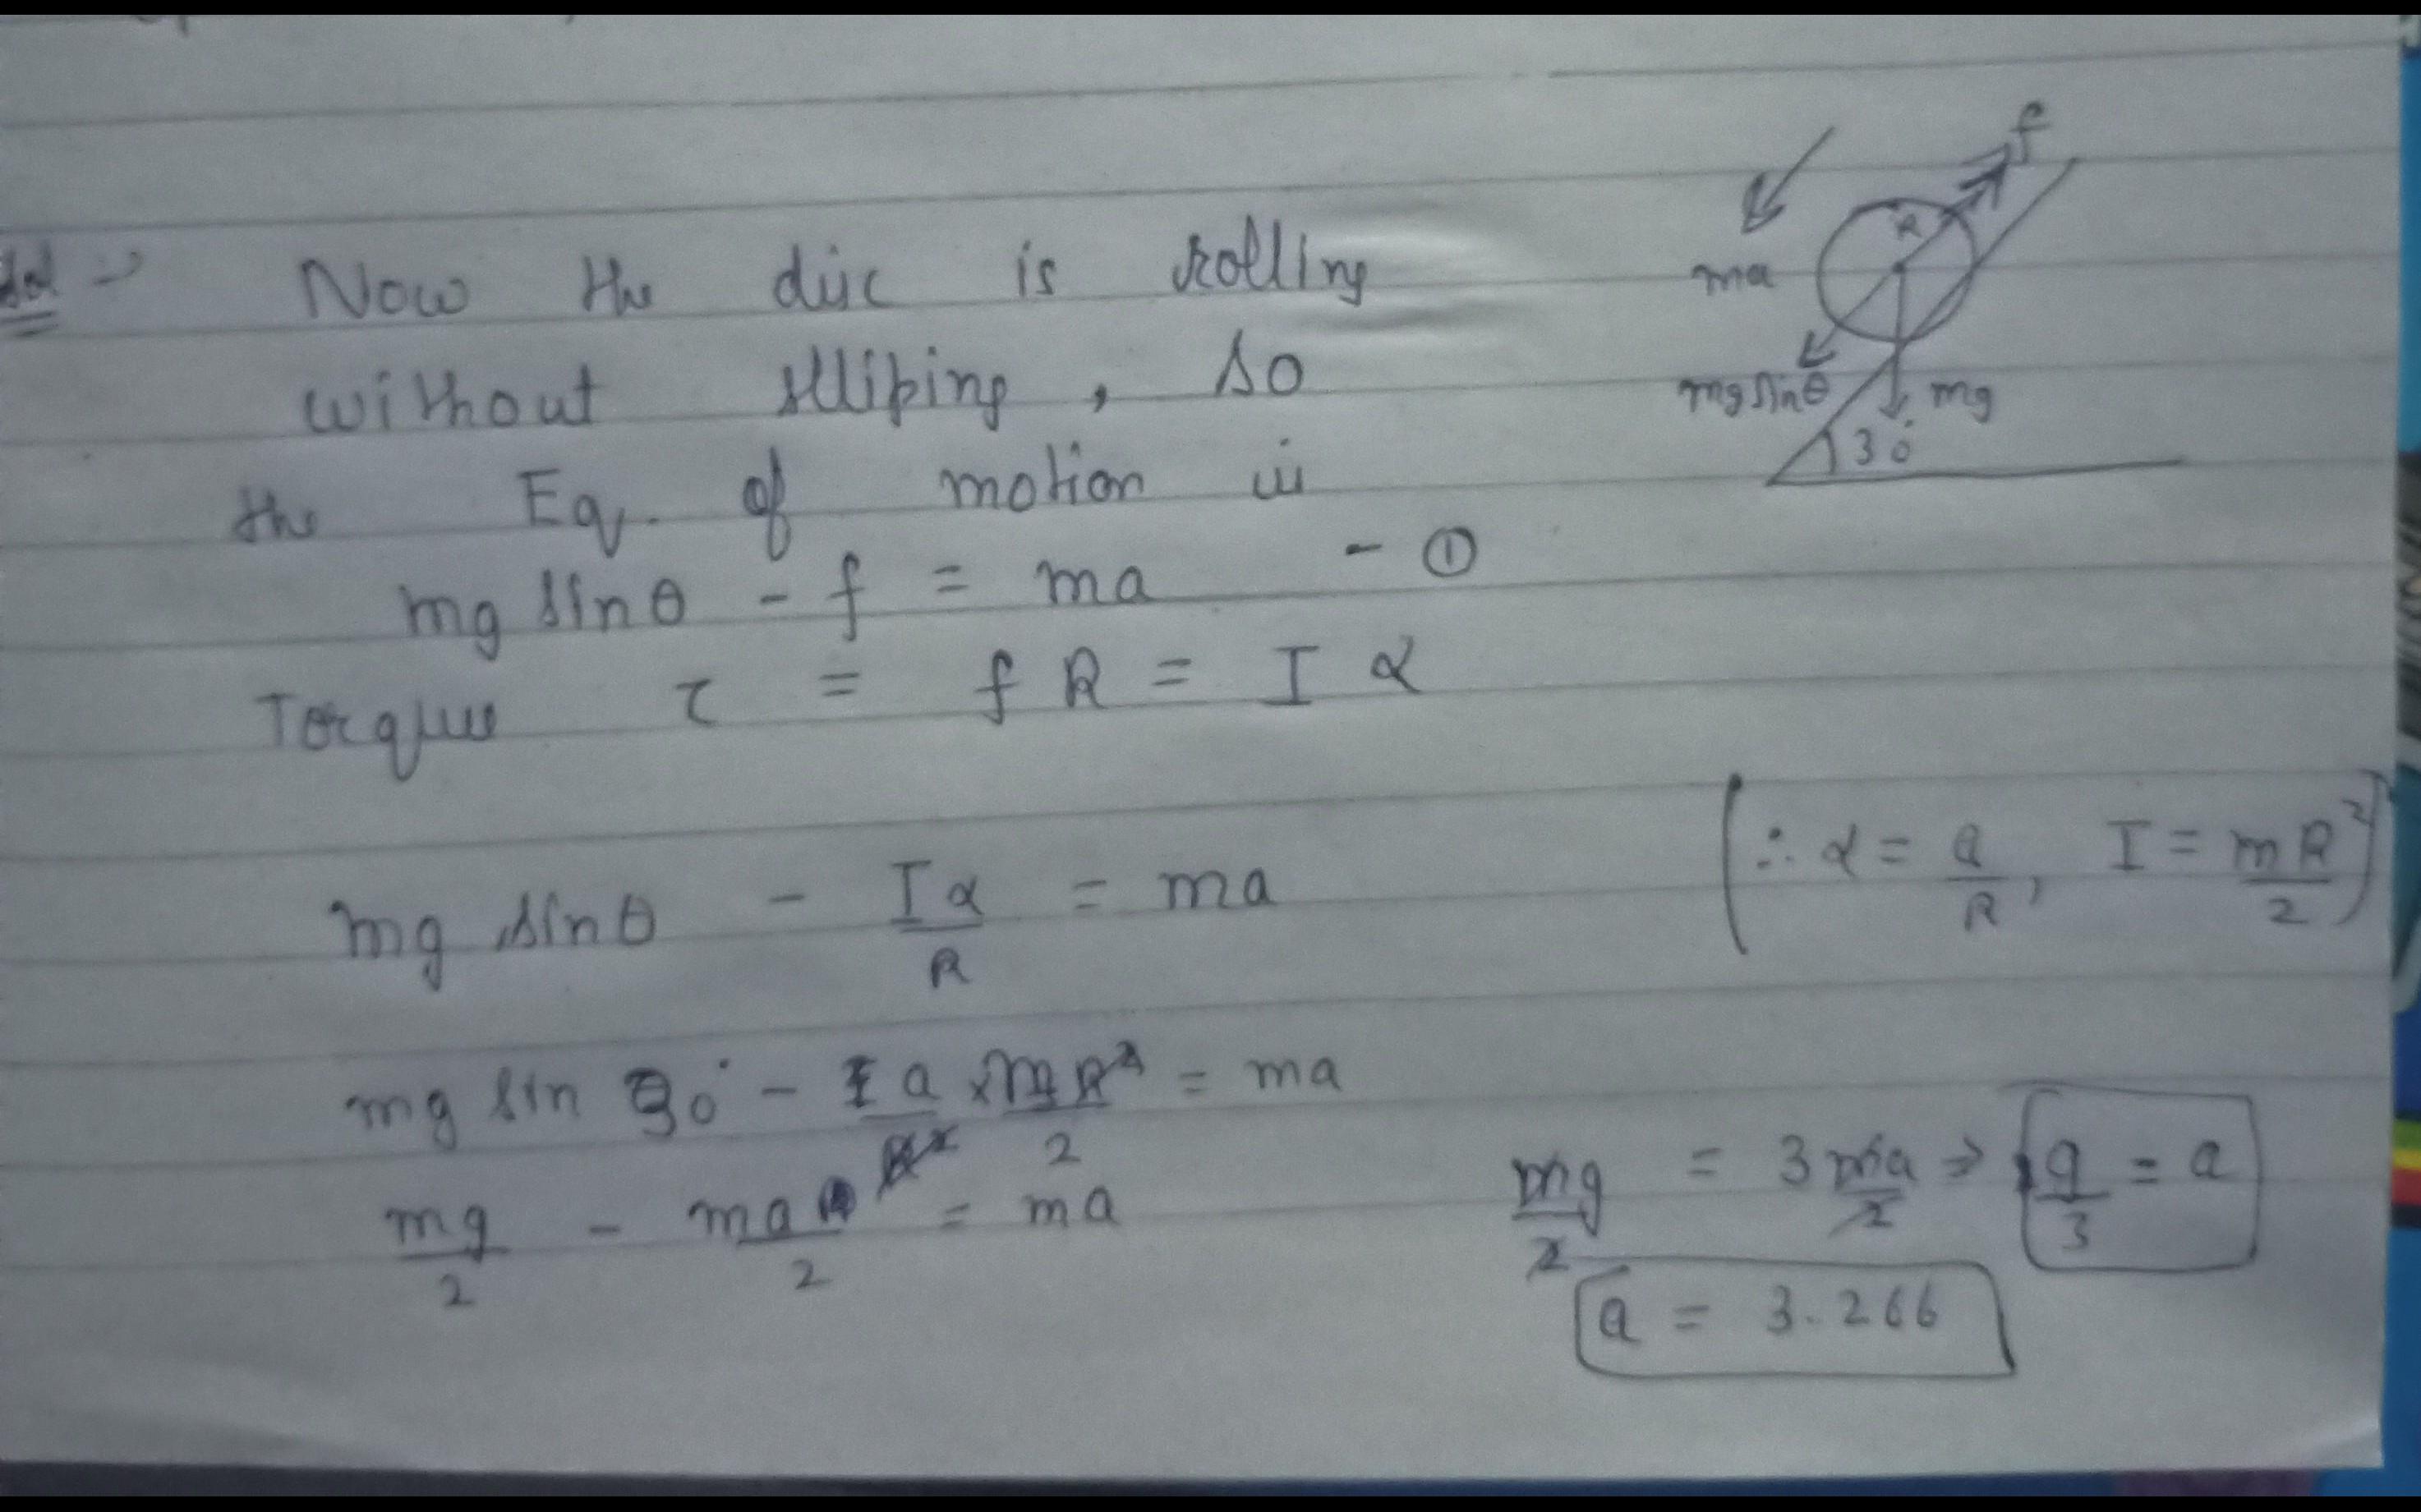 Sol →
Now the disc is rolling
without sliping, so
the Eq. of motion is
mg sinθ - f = ma - ①
Torque τ = fR = I α
mg sinθ - Iα/R = ma
(∴ α = a/R, I = mR²/2)
mg sin 30° - a/R² × mR²/2 = ma
mg/2 - ma/2 = ma
mg/2 = 3ma/2 ⇒ g/3 = a
a = 3.266
f
R
ma
mg sinθ
mg
30°